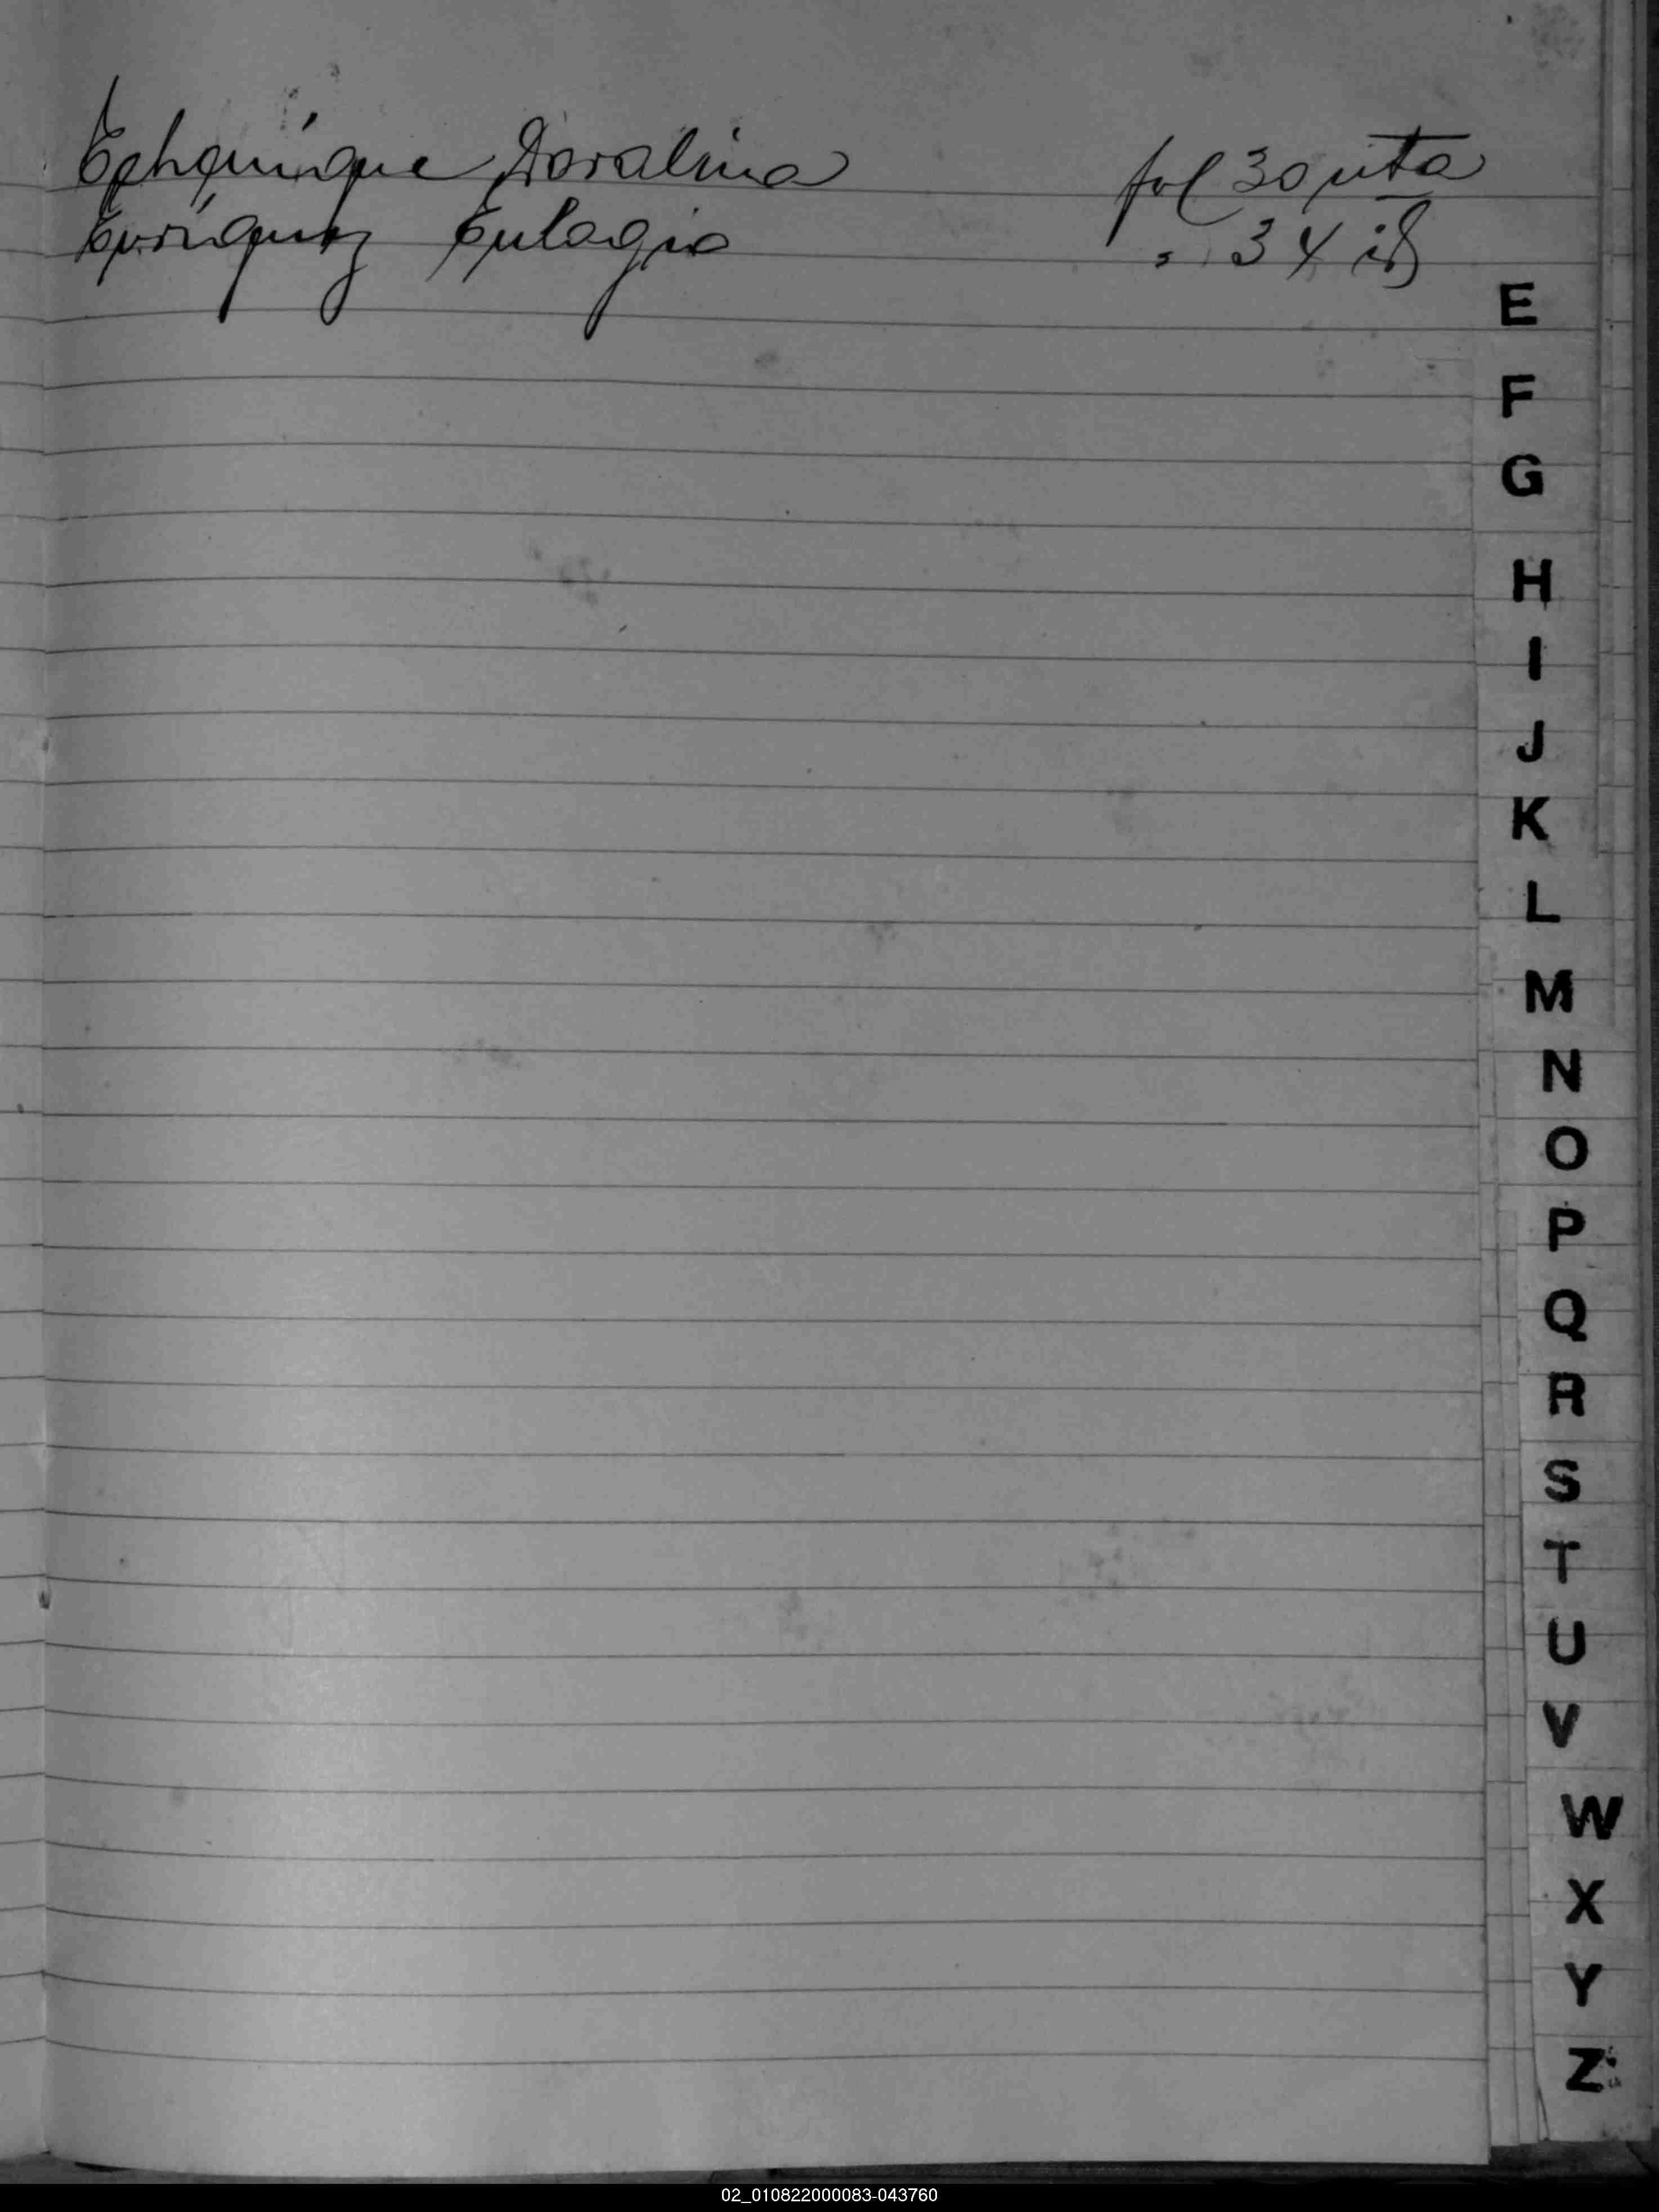 Echquinque Doralina fol 30 vta
Enriquez Eulogio " 34 id
E
F
G
H
I
J
K
L
M
N
O
P
Q
R
S
T
U
V
W
X
Y
Z
02_010822000083-043760